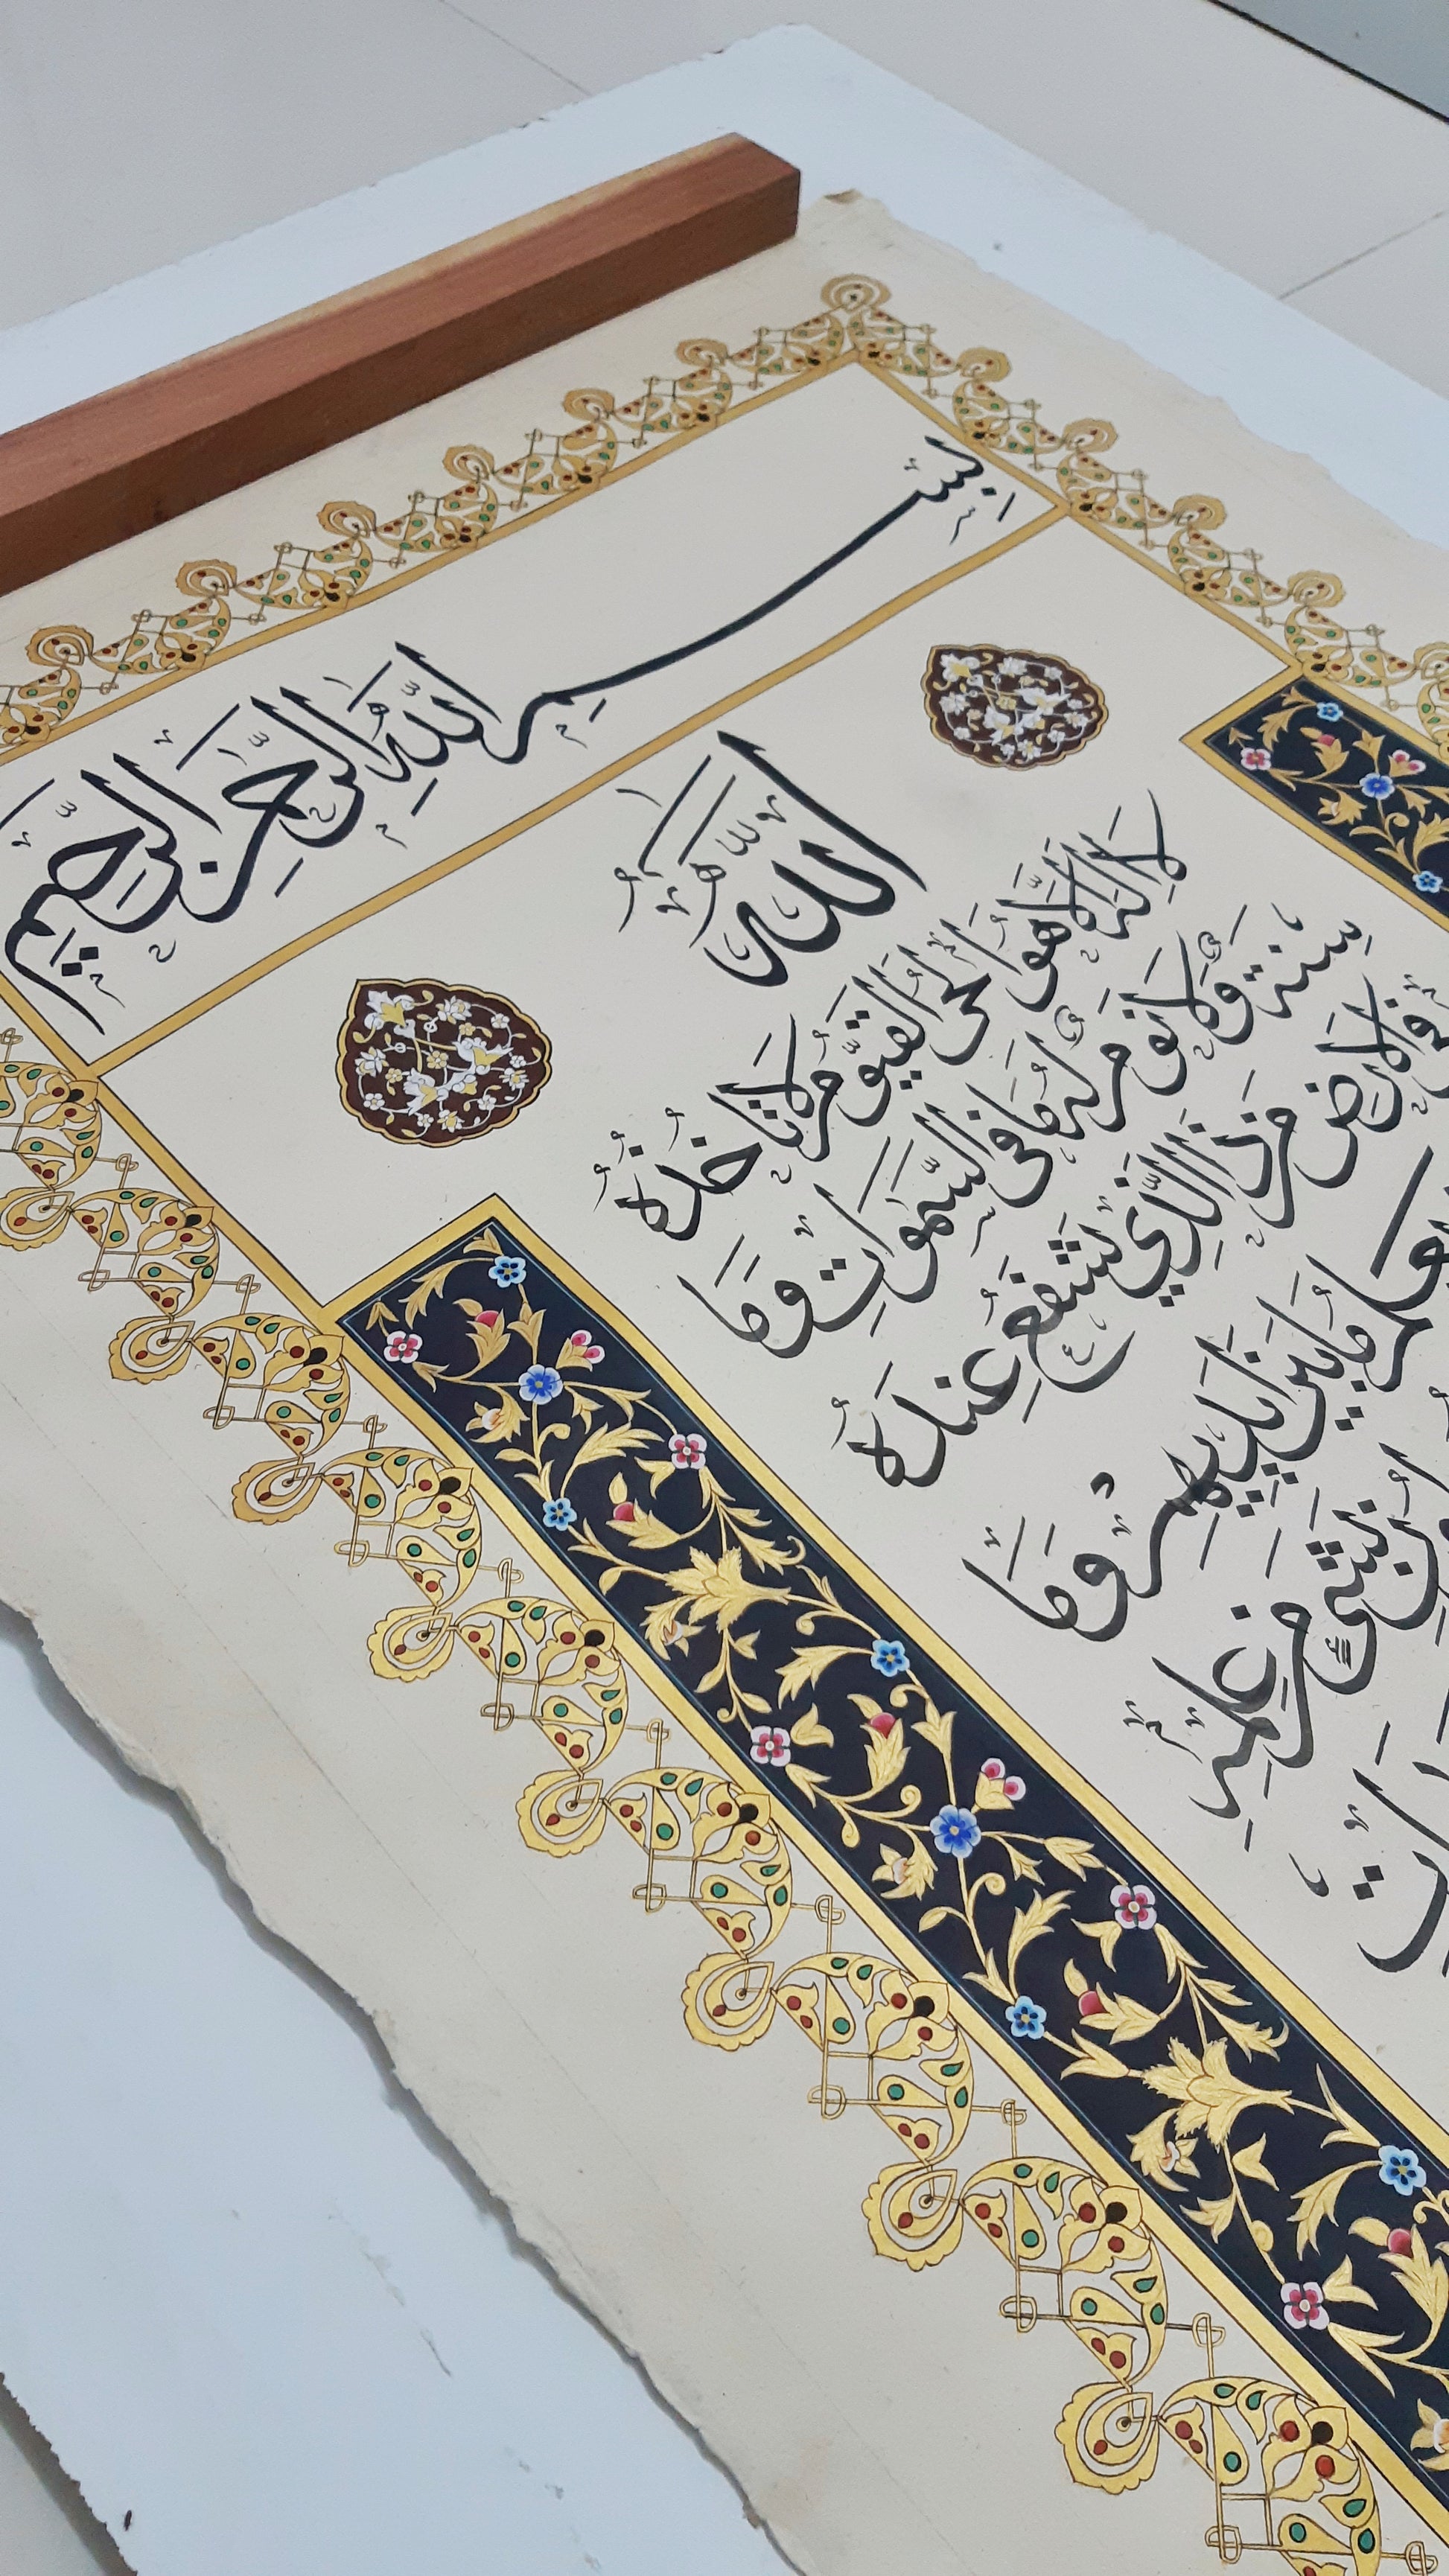 بِسْمِ اللّٰهِ الرَّحْمٰنِ الرَّحِيمِ
اَللّٰهُ
لَا إِلٰهَ إِلَّا هُوَ الْحَىُّ الْقَيُّومُ لَا تَأْخُذُهُ
سِنَةٌ وَلَا نَوْمٌ لَهُ مَا فِى السَّمٰوَاتِ وَمَا
فِى الْأَرْضِ مَنْ ذَا الَّذِي يَشْفَعُ عِنْدَهُ
يَعْلَمُ مَا بَيْنَ أَيْدِيهِمْ وَمَا
بِشَىْءٍ مِنْ عِلْمِهِ